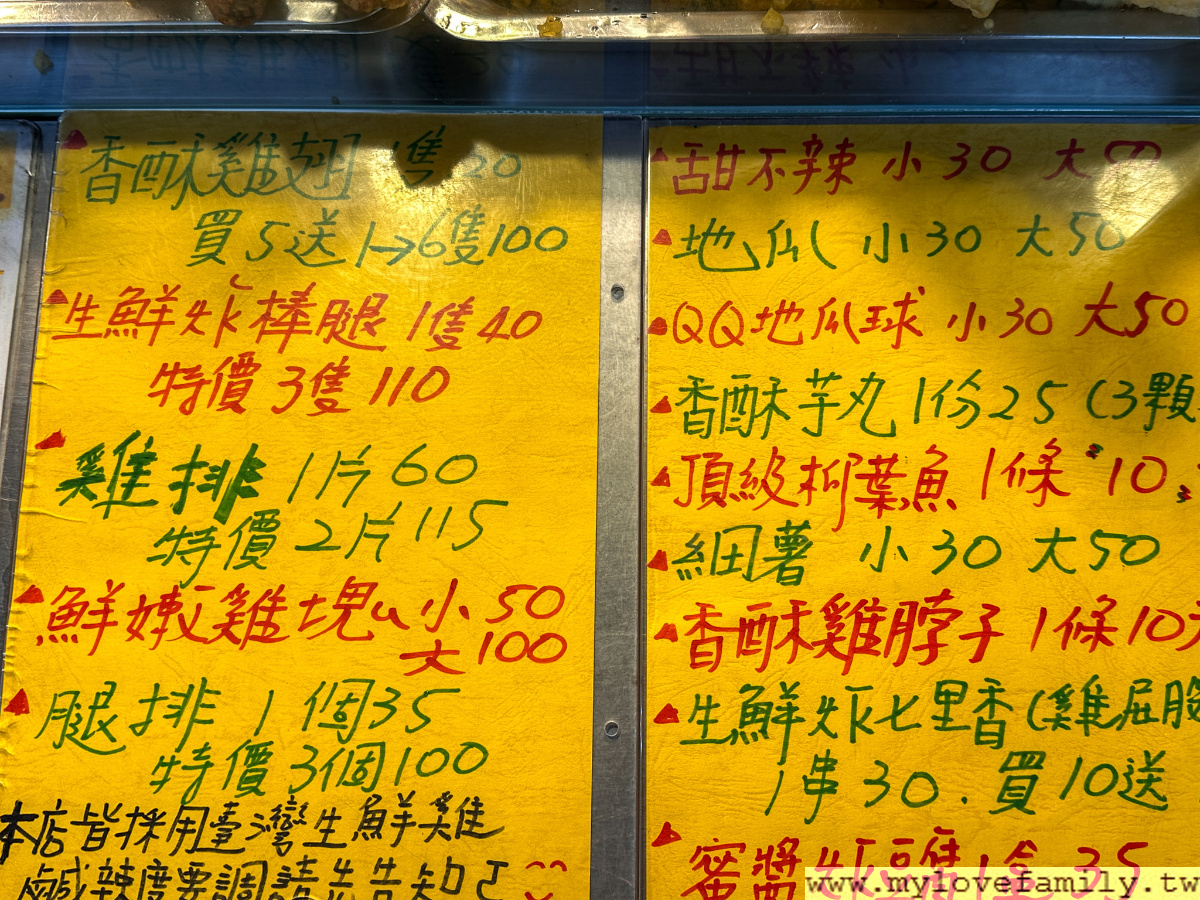 香酥雞翅 1隻 20
買5送1→6隻100
生鮮炸棒腿 1隻40
特價3隻110
雞排 1片60
特價2片115
鮮嫩雞塊 小50
大100
腿排 1個35
特價3個100
本店皆採用臺灣生鮮雞
鹹辣度要調請先告知
甜不辣 小30 大50
地瓜 小30 大50
QQ地瓜球 小30 大50
香酥芋丸 1份25 (3顆
頂級柳葉魚 1條 10
細薯 小30 大50
香酥雞脖子 1條10
生鮮炸七里香(雞屁股
1串30.買10送
蜜醬炸豆腐1盒35
www.mylovefamily.tw